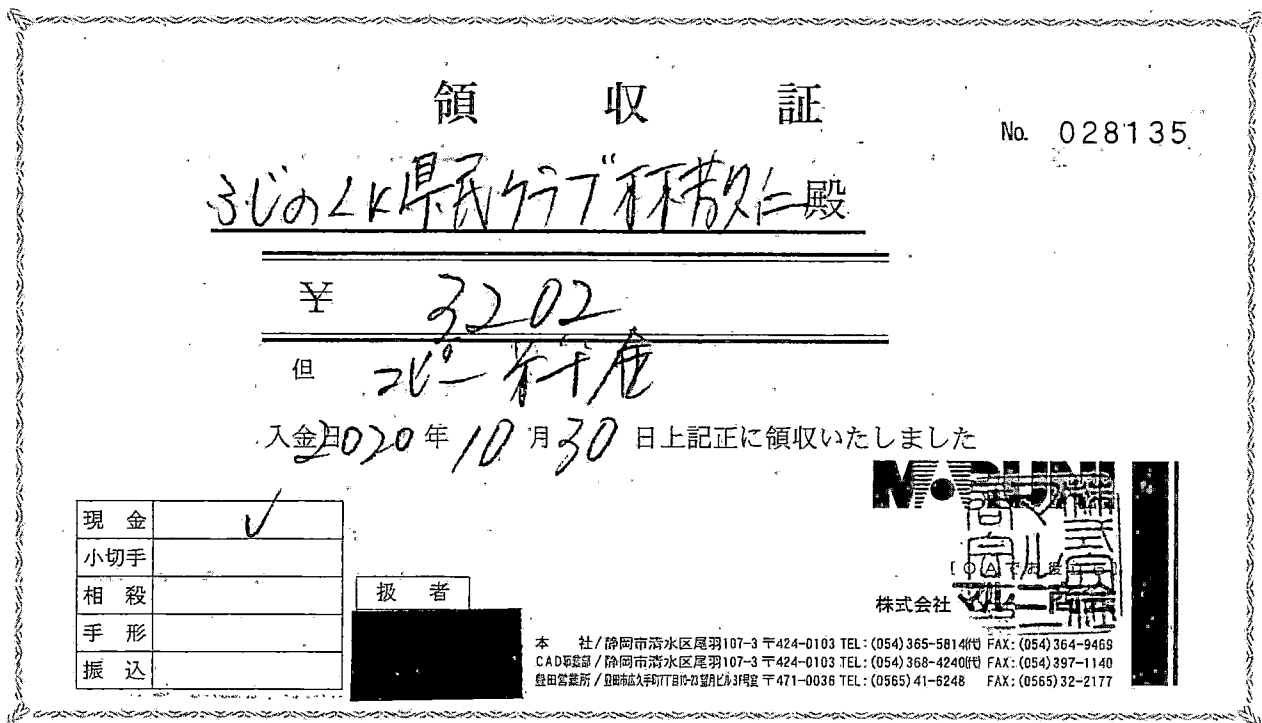 領 収 証
No. 028135
ふじのくに県民クラブ 林芳久仁 殿
¥ 3202
但 コピー料金
入金日2020年10月30日上記正に領収いたしました
現 金 ✓
小切手
相 殺
手 形
振 込
扱 者
MARUNI
株式会社
本 社/静岡市清水区尾羽107-3 〒424-0103 TEL:(054)365-5814(代) FAX:(054)364-9469
CAD事業部/静岡市清水区尾羽107-3 〒424-0103 TEL:(054)368-4240(代) FAX:(054)397-1140
豊田営業所/〒471-0036 TEL:(0565)41-6248 FAX:(0565)32-2177